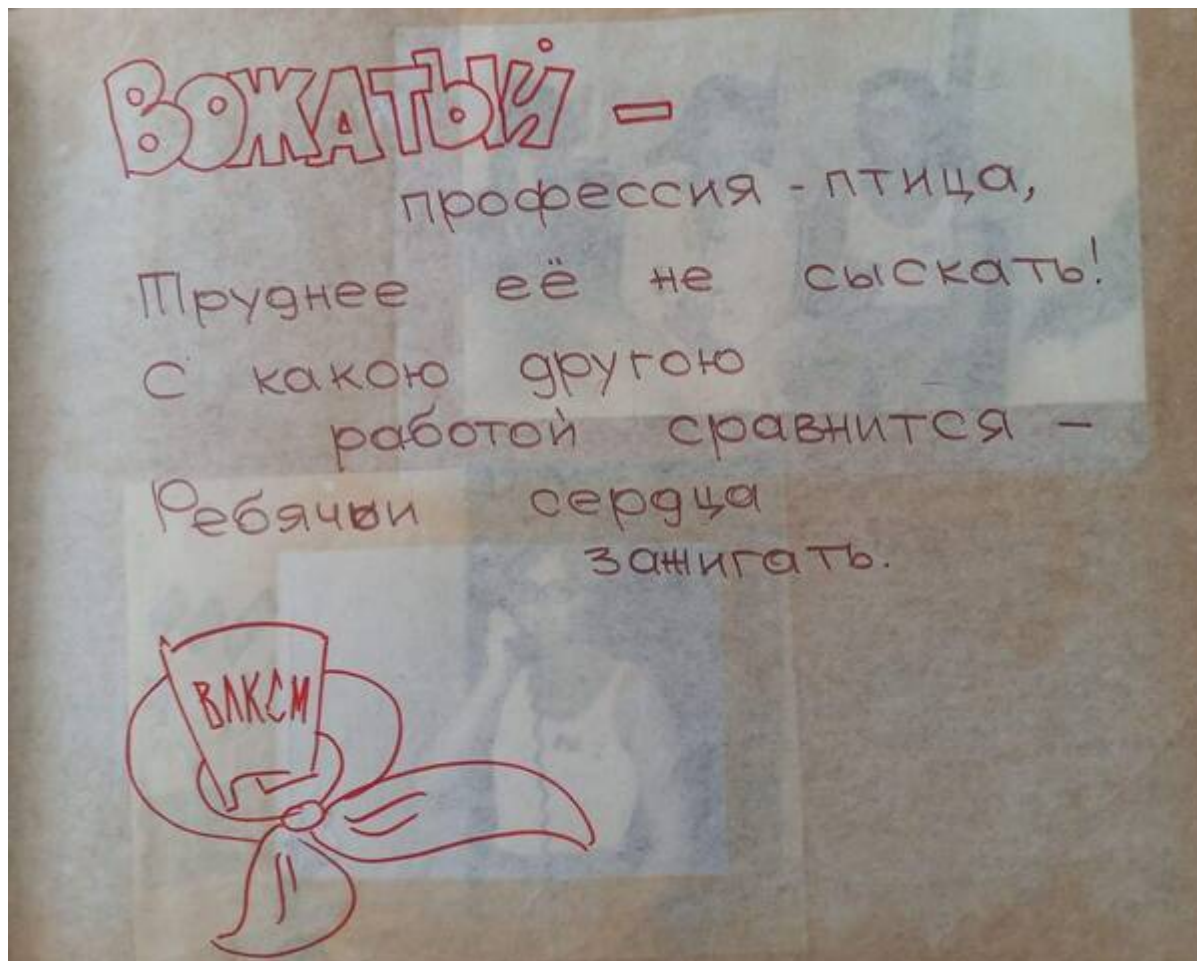 ВОЖАТЫЙ –
профессия - птица,
Труднее её не сыскать!
С какою другою
работой сравнится –
Ребячьи сердца
зажигать.
ВЛКСМ